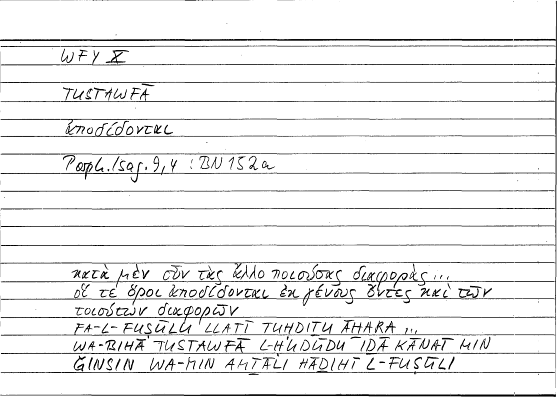 WFY X
TUSTAWFĀ
ἀποδίδονται
Porph. Isag. 9,4 : BN 152a
κατὰ μὲν οὖν τὰς ἄλλο ποιούσας διαφορὰς ...
οἵ τε ὅροι ἀποδίδονται ἐκ γένους ὄντες καὶ τῶν
τοιούτων διαφορῶν
FA-L-FUṢŪLU LLATĪ TUḤDIṮU ĀḪARA ...
WA-BIHĀ TUSTAWFĀ L-ḤUDŪDU IḎĀ KĀNAT MIN
ǦINSIN WA-MIN AMṮĀLI HĀḎIHĪ L-FUṢŪLI